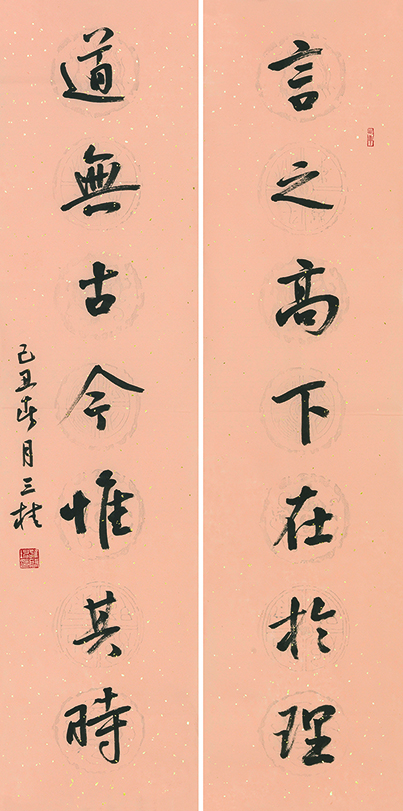 言之高下在於理
道無古今惟其時
己丑春月三桂